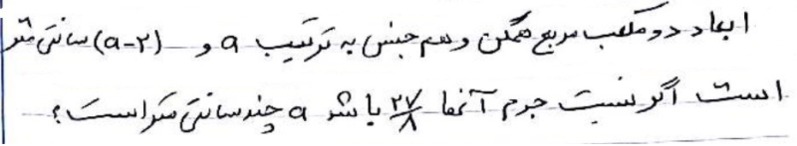 ابعاد دو مکعب مربع همگن و هم جنس به ترتیب a و (a-۲) سانتی متر
است اگر نسبت جرم آنها ۲۷/۸ باشد a چند سانتی متر است؟